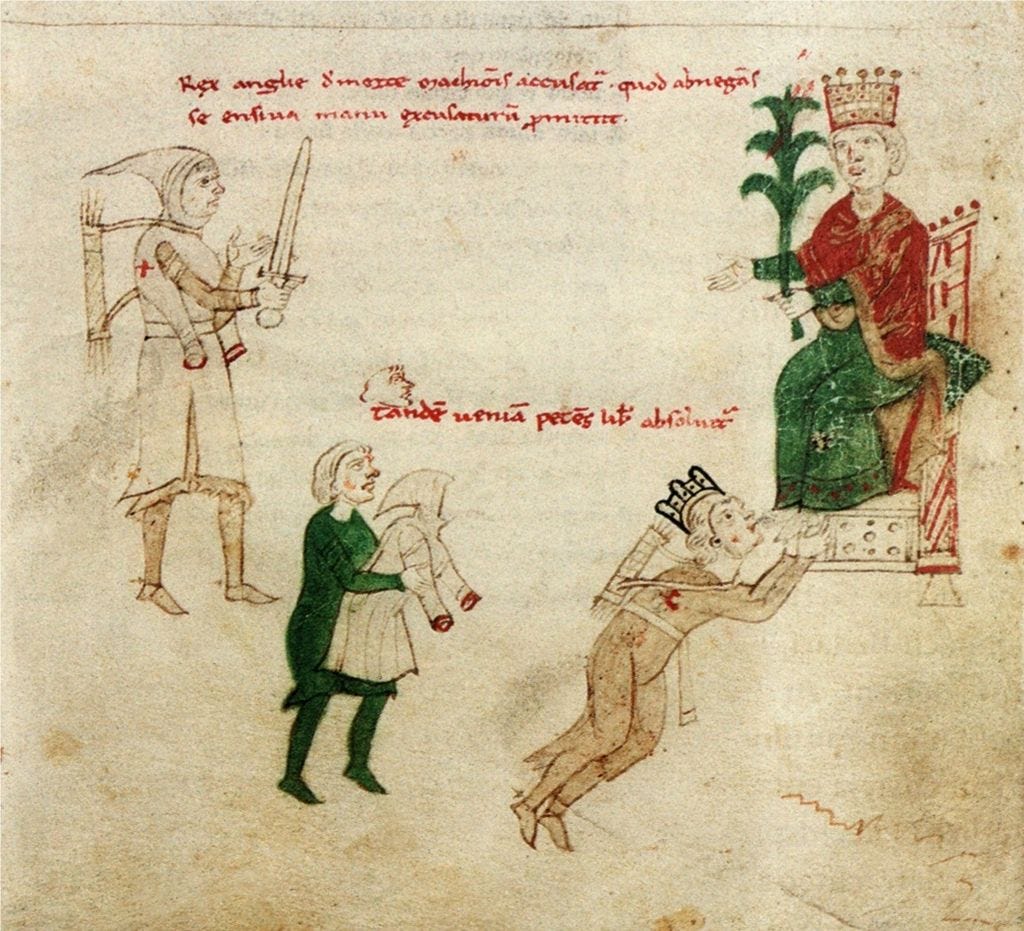 Rex anglie d̄ morte Marchiōis accusat᷑ · quod abnegās
se ensiva manu excusaturū ꝓmittit ·
Tandē veniā petēs lib̄ absolvit᷑